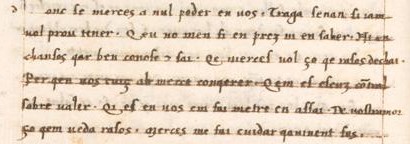 onc se merces a nul poder en vos. Traga senan si iam
vol prou tener. Qeu no men fi en prez ni en saber. Ni en
chansos qar ben conosc e sai. Qe merces vol ço qe rasos dechai.
Per qen vos cuig ab merce conqerer. Qem es escuz contral
sobre valer. Qes en vos em fai metre en assai. De vostramor
ço qem veda rasos. Merces me fai cuidar qavinent fos.